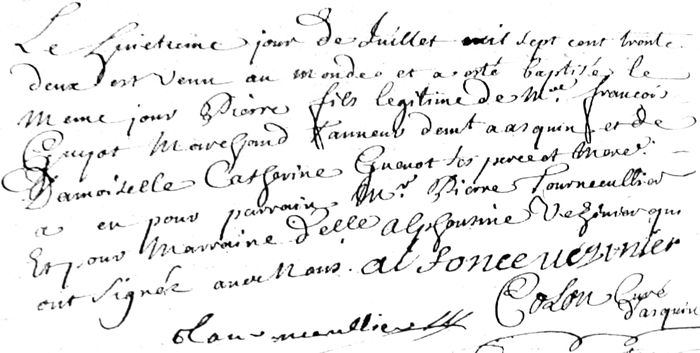 Le huictieme jour de Juillet mil sept cent trente
deux est venu au monde et a esté baptisé le
meme jour Pierre fils legitime de Mre françois
Guyot Marchand Tanneur demt a asquin et de
Damoiselle Catherine Guenot ses pere et Mere
a eu pour parrain Mr Pierre Tournecullier
Et pour Marraine delle alphonsine Vezinier qui
ont signée avec Nous. alfonce vezinier
Colon Curé
d'asquin